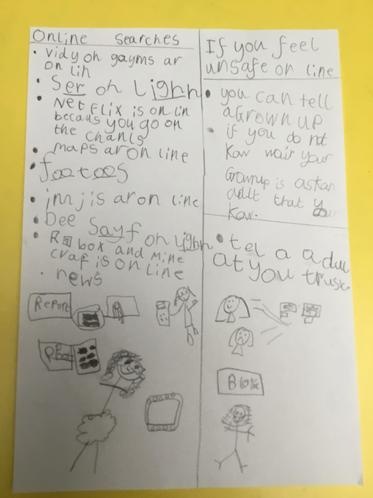 Online searches
• vidyoh gayms ar
on lin
• Ser oh Lighn
• Netflix is on lin
becaus you go on
the chanls
• maps ar on line
• footoos
• jmjis ar on line
• Bee Sayf on Lighn
• Ro box and Mine
craf is on line
. news
Report
If you feel
unsafe on line
• you can tell
a Grown UP
• if you do not
Kow wair your
Grownup is askan
adult that you
Kow.
• tel a a dul
at you truste
Block